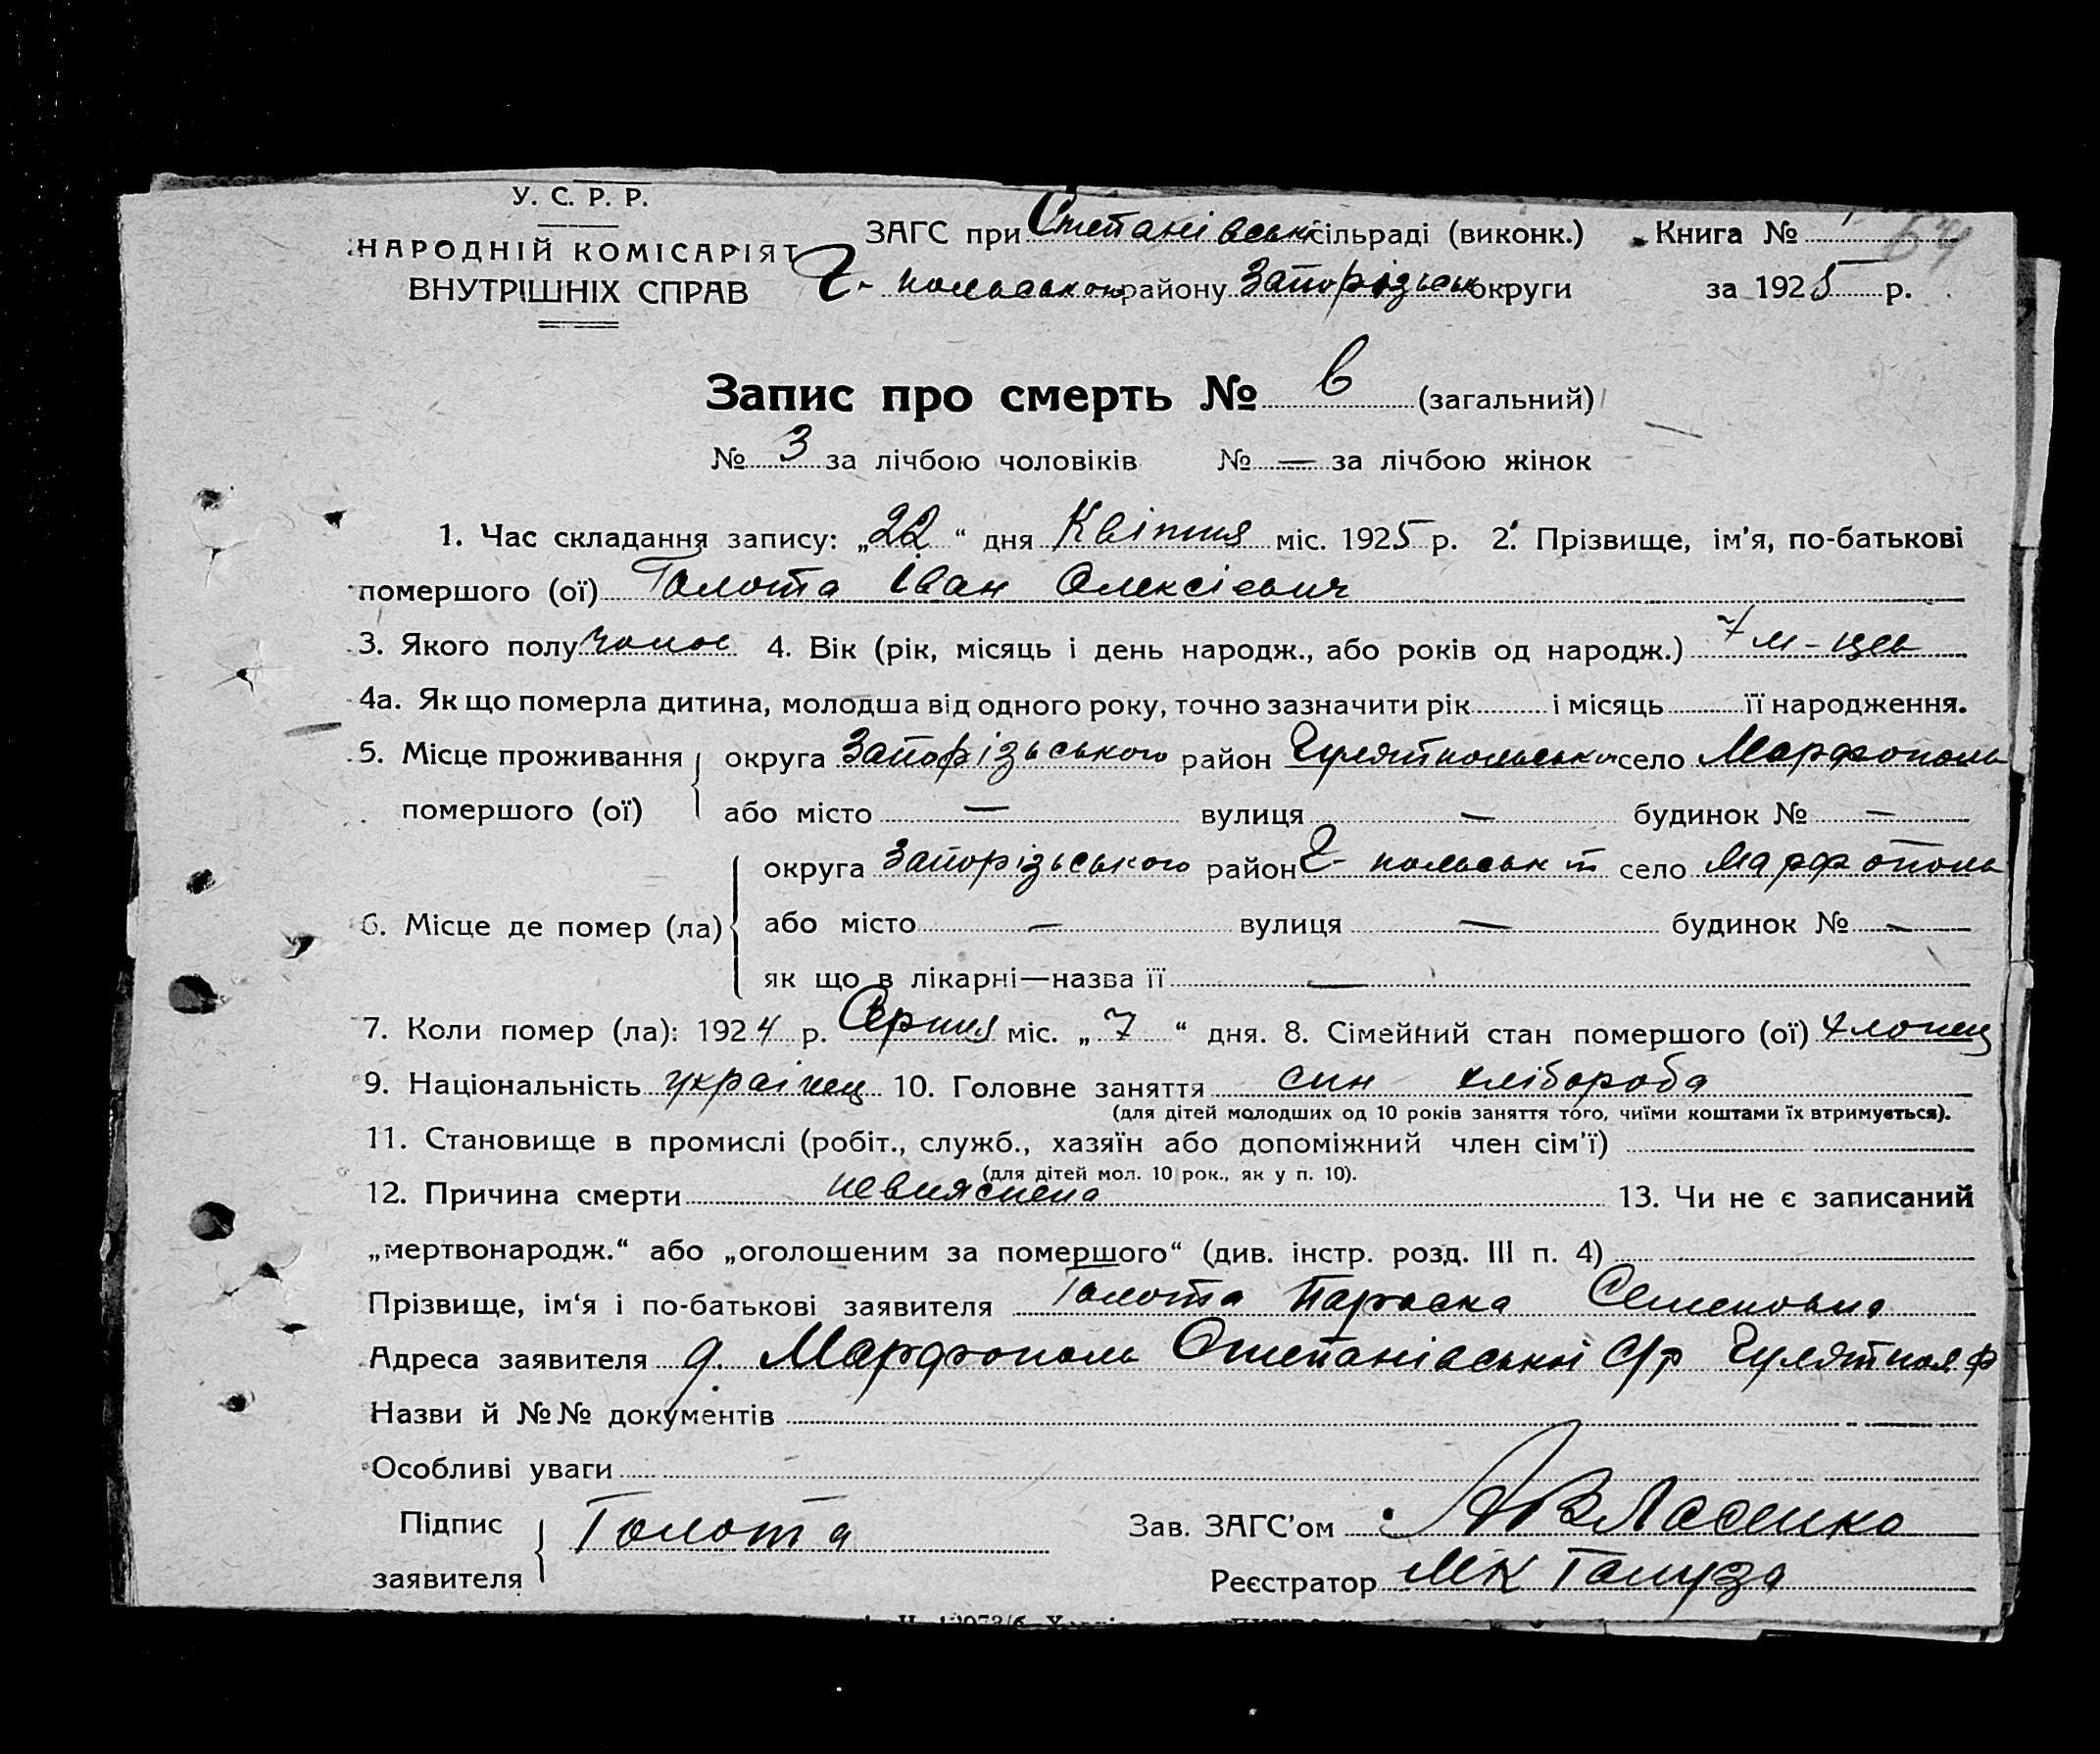 У. С. Р. Р.
НАРОДНІЙ КОМІСАРІЯТ
ВНУТРІШНІХ СПРАВ
ЗАГС при Степанівськ сільраді (виконк.)
Г- польського району Запорізьк округи
Книга № 1 64
за 1925 р.
Запис про смерть № 6 (загальний)
№ 3 за лічбою чоловіків № — за лічбою жінок
1. Час складання запису: „22“ дня Квітня міс. 1925 р. 2. Прізвище, ім'я, по-батькові
помершого (ої) Голота Іван Олексієвич
3. Якого полу чолов 4. Вік (рік, місяць і день народж., або років од народж.) 7 м-цев
4а. Як що померла дитина, молодша від одного року, точно зазначити рік і місяць її народження.
5. Місце проживання помершого (ої) округа Запорізького район Гуляйпольськ село Марфополь
або місто — вулиця — будинок № —
6. Місце де помер (ла) округа Запорізького район Г- польськ село Марфополь
або місто — вулиця — будинок № —
як що в лікарні—назва її —
7. Коли помер (ла): 1924 р. Серпня міс. „7“ дня. 8. Сімейний стан помершого (ої) хлопец
9. Національність українец 10. Головне заняття син хлібороба
(для дітей молодших од 10 років заняття того, чиїми коштами їх втримується).
11. Становище в промислі (робіт., служб., хазяїн або допоміжний член сім'ї)
(для дітей мол. 10 рок., як у п. 10).
12. Причина смерти невияснена 13. Чи не є записаний
„мертвонародж.“ або „оголошеним за помершого“ (див. інстр. розд. III п. 4)
Прізвище, ім'я і по-батькові заявителя Голота Параска Семеновна
Адреса заявителя д. Марфополь Степанівської С/р Гуляйпол р
Назви й №№ документів
Особливі уваги
Підпис заявителя Голота
Зав. ЗАГС'ом Власенко
Реєстратор МК Галуза